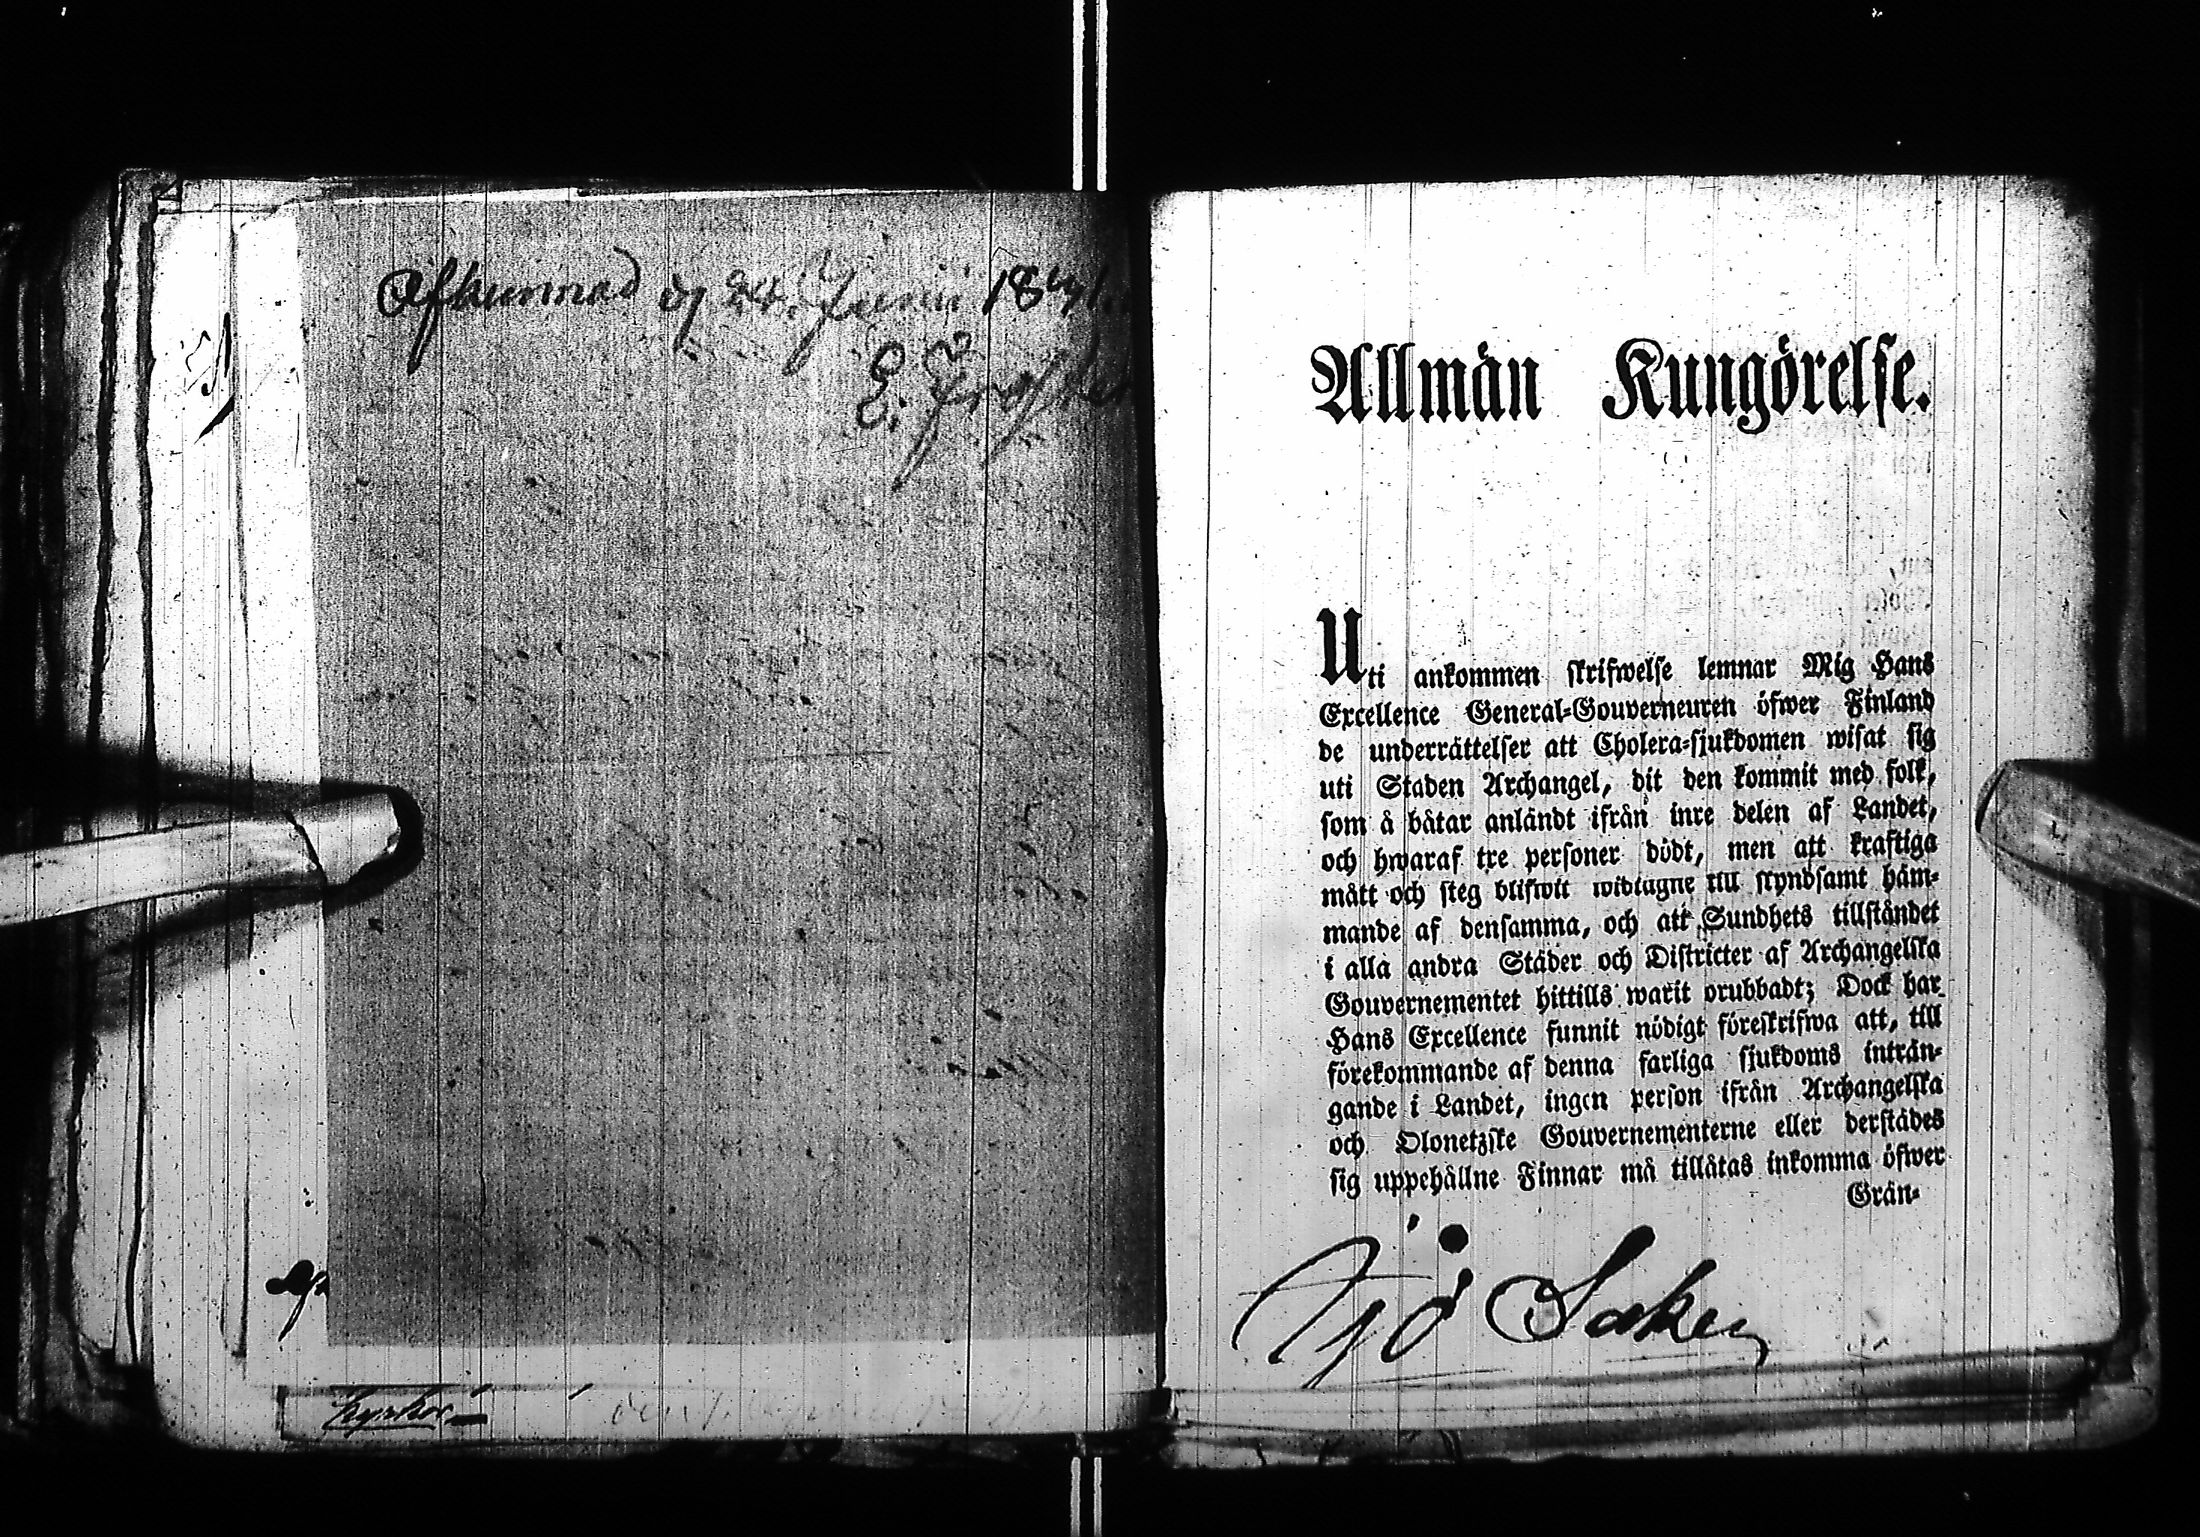 Afkunnad dj 24. Junii 1831.
E.
Allmän Kungörelse.
Uti ankommen skrifwelse lemnar Mig Hans
Excellence General-Gouverneuren öfwer Finland
de underrättelser att Cholera-sjukdomen wisat sig
uti Staden Archangel, dit den kommit med folk,
som å båtar anländt ifrån inre delen af Landet,
och hwaraf tre personer dödt, men att kraftiga
mått och steg blifwit widtagne till skyndsamt häm-
mande af densamma, och att Sundhets tillståndet
i alla andra Städer och Districter af Archangelska
Gouvernementet hittills warit orubbadt; Dock har
Hans Excellence funnit nödigt föreskrifwa att, till
förekommande af denna farliga sjukdoms inträn-
gande i Landet, ingen person ifrån Archangelska
och Olonetzske Gouvernementerne eller derstädes
sig uppehållne Finnar må tillåtas inkomma öfwer
Grän-